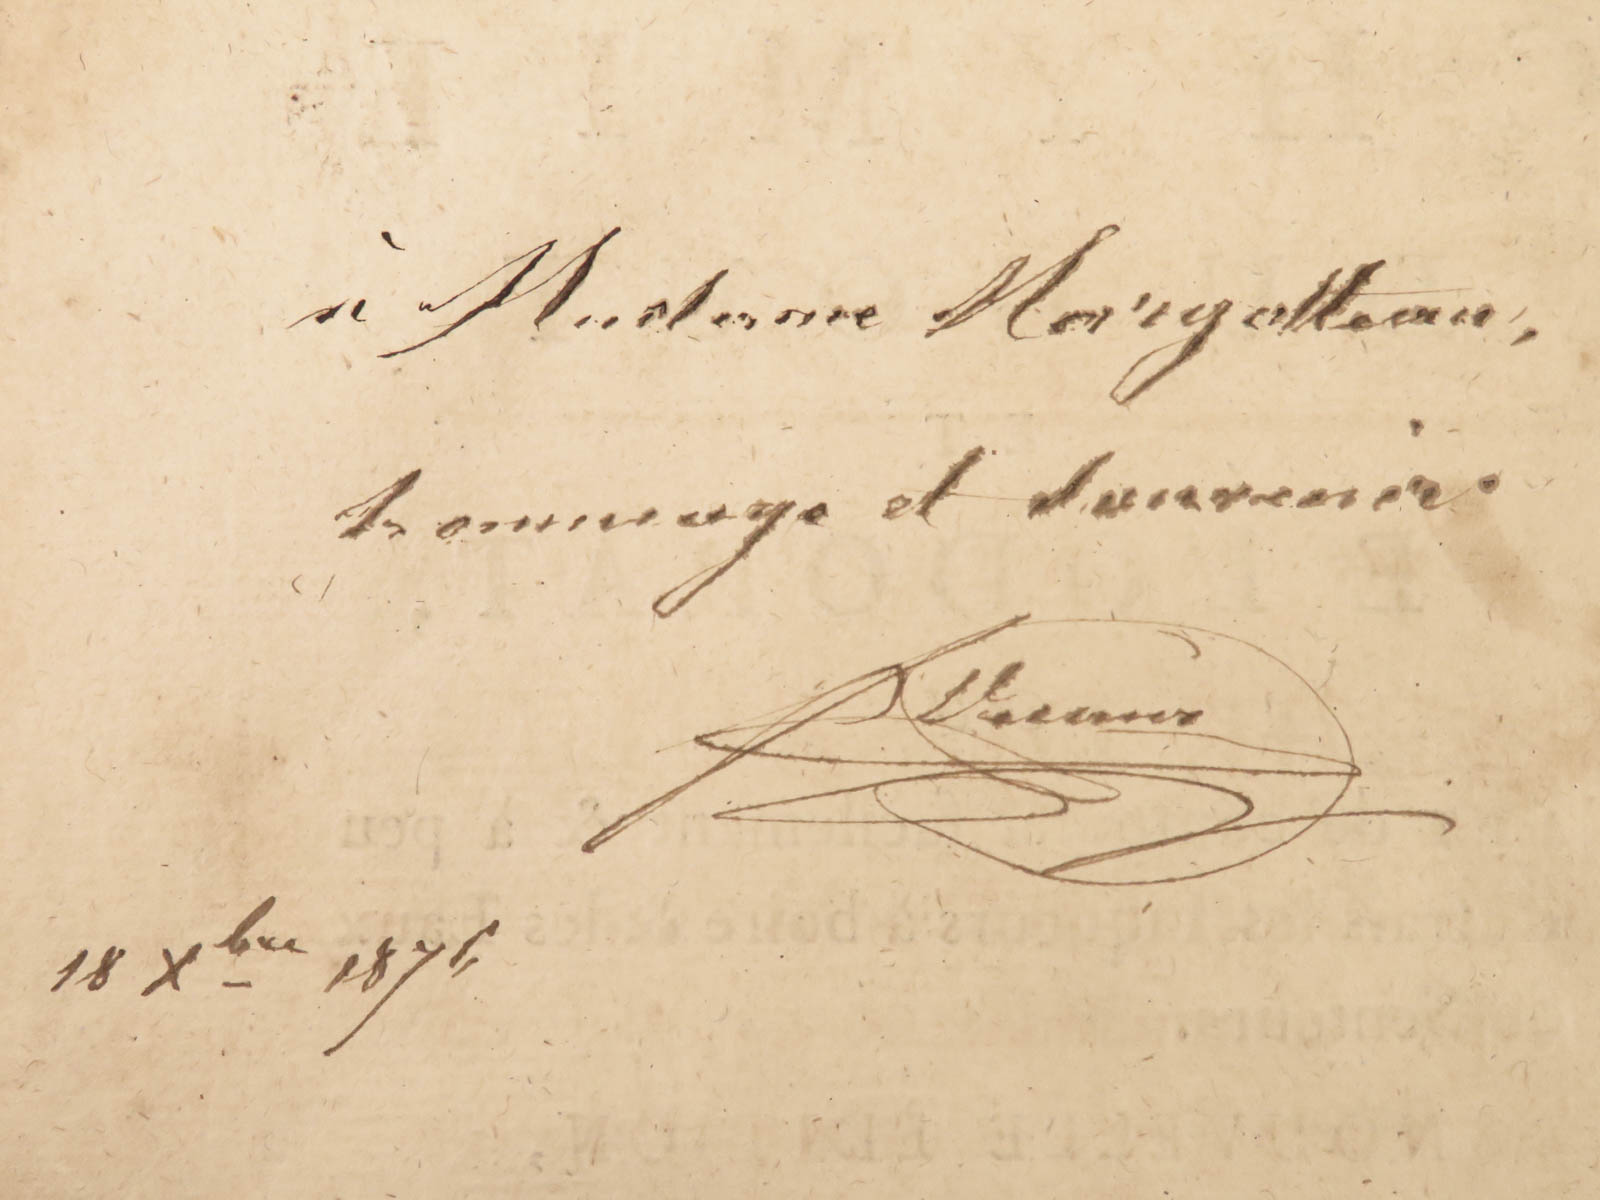 à Madame Morigatteau,
hommage et souvenir.
18 Xbre 1875